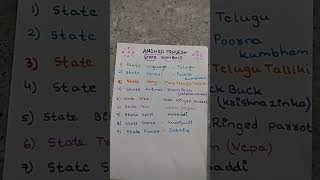 ANDHRA PRADESH
STATE SYMBOLS
1) State language - Telugu
2) State Symbol - Poorna kumbham
3) State Song - Maa Telugu Talliki
4) State Animal - Black Buck (krishnazinka)
5) State Bird - Rose Ringed parrot
6) State Tree - Neem (Vepa)
7) State Sport - kabaddi
8) State Dance - kuchipudi
9) State Flower - Jasmine
1) State
2) State
3) State
4) State
5) State Bi
6) State Tr
7) State S
Telugu
Poorna
kumbham
Telugu Talliki
Buck
(krishnazinka)
Ringed parrot
(Vepa)
baddi